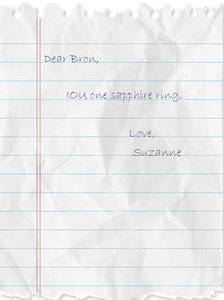 Dear Bron,
IOU one sapphire ring.
Love,
Suzanne